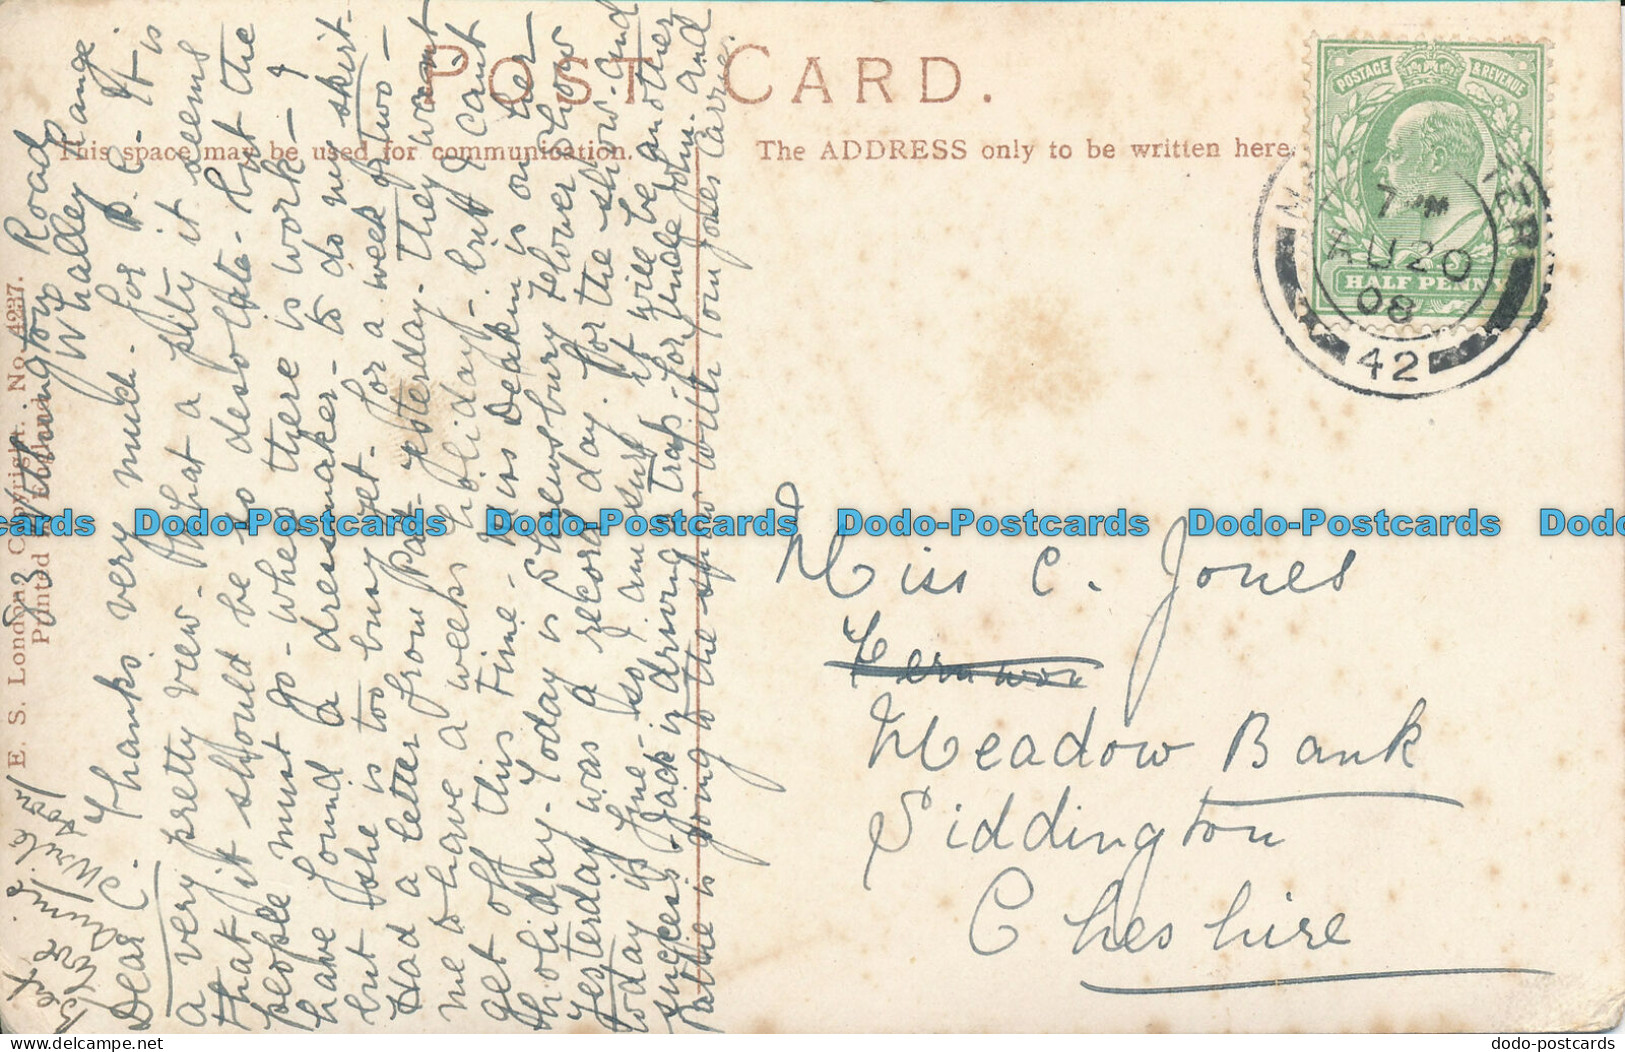 POST CARD.
This space may be used for communication.
The ADDRESS only to be written here.
E. S. London. Copyright. No. 4237.
Printed in England.
Road
Whalley Range
Dear C. Thanks very much for p. c. It is
a very pretty view. What a pity it seems
that it should be so desolate - but the
people must go where there is work - I
have found a dressmaker - to do my skirt -
but she is too busy yet. for a week or two -
Had a letter from Pat yesterday. They want
me to have a weeks holiday - but I cant
get off this time. Miss Deakin is on her
holiday. Today is Shrewsbury Flower Show
Yesterday was a record day. for the show. and
today is fine - so I am sure it will be another
success. Jack is driving a trap for Uncle John. and
Pattie is going to the show with Tom Jones Carrier.
Best
love
Write soon
POSTAGE & REVENUE
HALF PENNY
7 PM
AU 20
08
42
Miss C. Jones
Meadow Bank
Siddington
Cheshire
Dodo-Postcards Dodo-Postcards Dodo-Postcards Dodo-Postcards
delcampe.net
Dodo-postcards